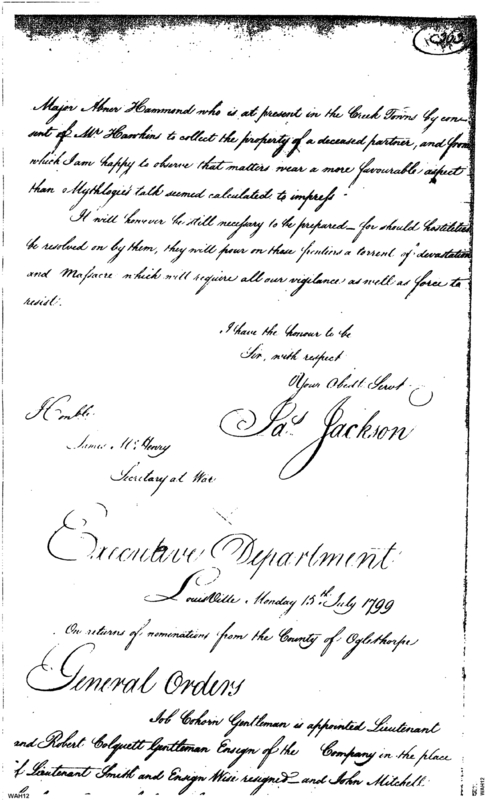 Major Abner Hammond who is at present in the Creek Towns by con-
sent of Mr Hawkins to collect the property of a deceased partner, and from
which I am happy to observe that matters wear a more favourable aspect
than Mythlogies talk seemed calculated to impress
It will however be still necessary to be prepared – for should hostilities
be resolved on by them, they will pour on those frontiers a torrent of devastation
and Massacre which will require all our vigilance as well as force to
resist.
I have the honour to be
Sir, with respect
Your Obedt Servt
Jas Jackson
Honble
James McHenry
Secretary at War
Executive Department
Louisville Monday 15th July 1799
On returns of nominations from the County of Oglethorpe
General Orders
Job Cohorn Gentleman is appointed Lieutenant
and Robert Colquett Gentleman Ensign of the Company in the place
of Lieutenant Smith and Ensign Wise resigned and John Mitchell
WAH12
WAH12